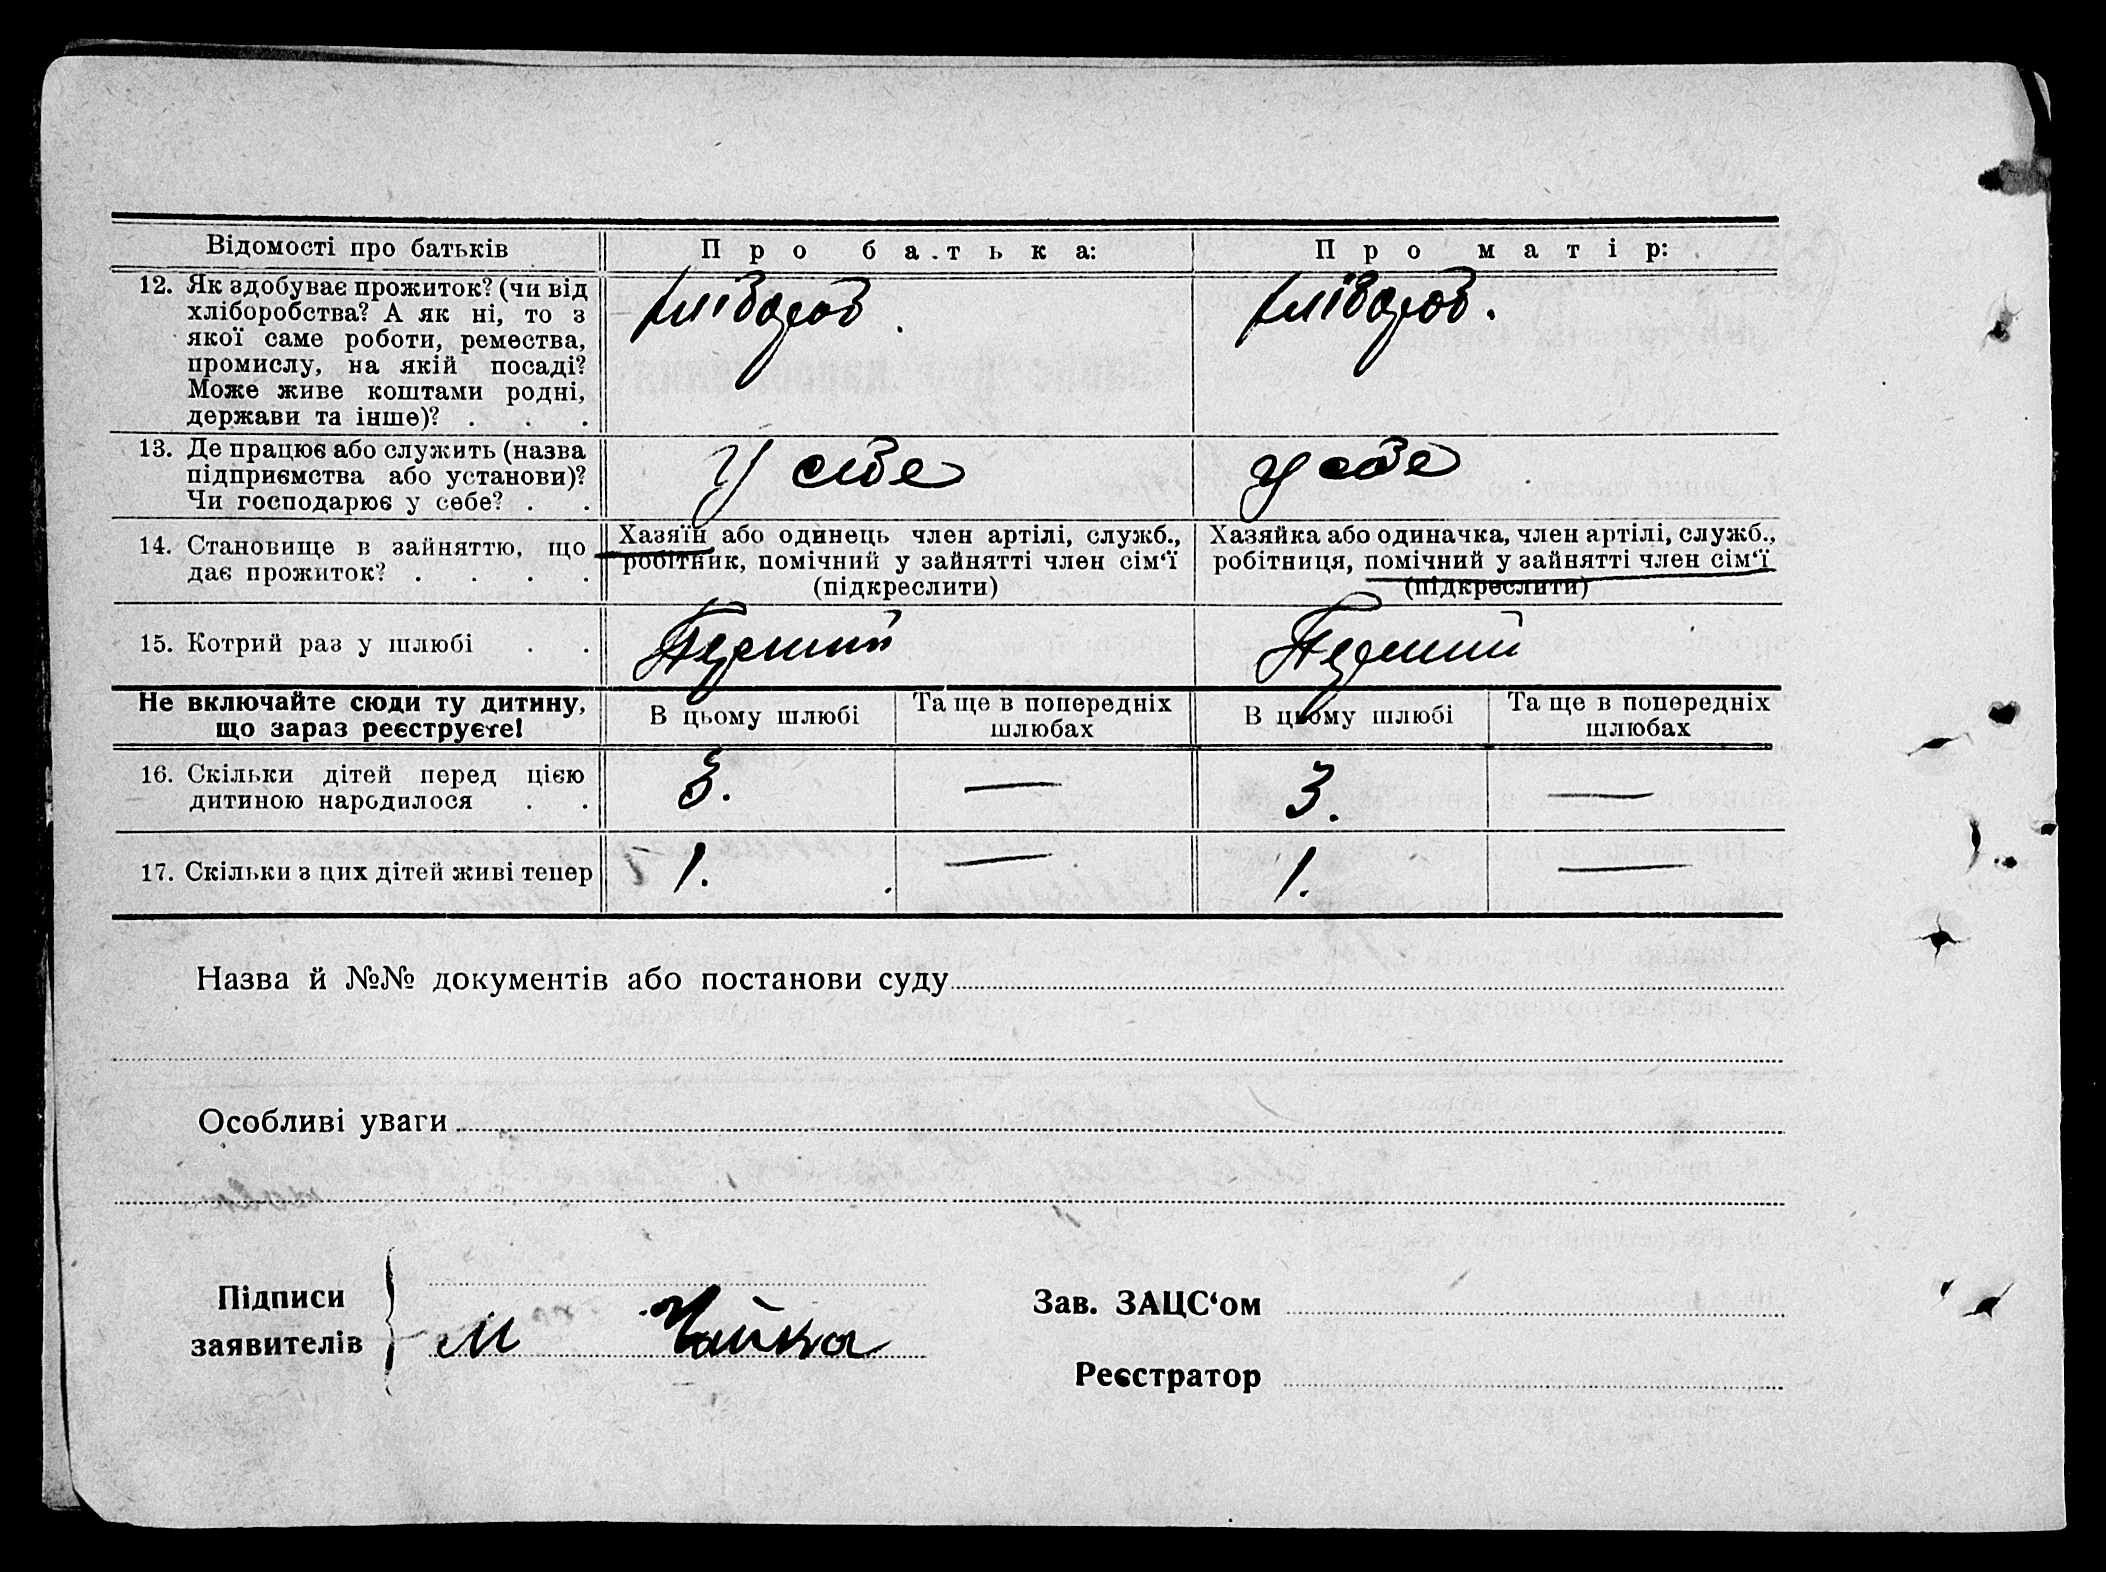 Відомості про батьків
Про батька:
Про матір:
12. Як здобуває прожиток? (чи від
хліборобства? А як ні, то з
якої саме роботи, ремества,
промислу, на якій посаді?
Може живе коштами родні,
держави та інше)? . . .
13. Де працює або служить (назва
підприємства або установи)?
Чи господарює у себе? . .
у себе
у себе
14. Становище в зайняттю, що
дає прожиток? . . . .
Хазяїн або одинець член артілі, служб.,
робітник, помічний у зайнятті член сім‘ї
(підкреслити)
Хазяйка або одиначка, член артілі, служб.,
робітниця, помічний у зайнятті член сім‘ї
(підкреслити)
15. Котрий раз у шлюбі . .
Перший
Перший
Не включайте сюди ту дитину,
що зараз реєструєте!
В цьому шлюбі
Та ще в попередніх
шлюбах
В цьому шлюбі
Та ще в попередніх
шлюбах
16. Скільки дітей перед цією
дитиною народилося . .
3.
—
3.
—
17. Скільки з цих дітей живі тепер
1.
—
1.
—
Назва й №№ документів або постанови суду
Особливі уваги
Підписи
заявителів
М Чайка
Зав. ЗАЦС‘ом
Реєстратор